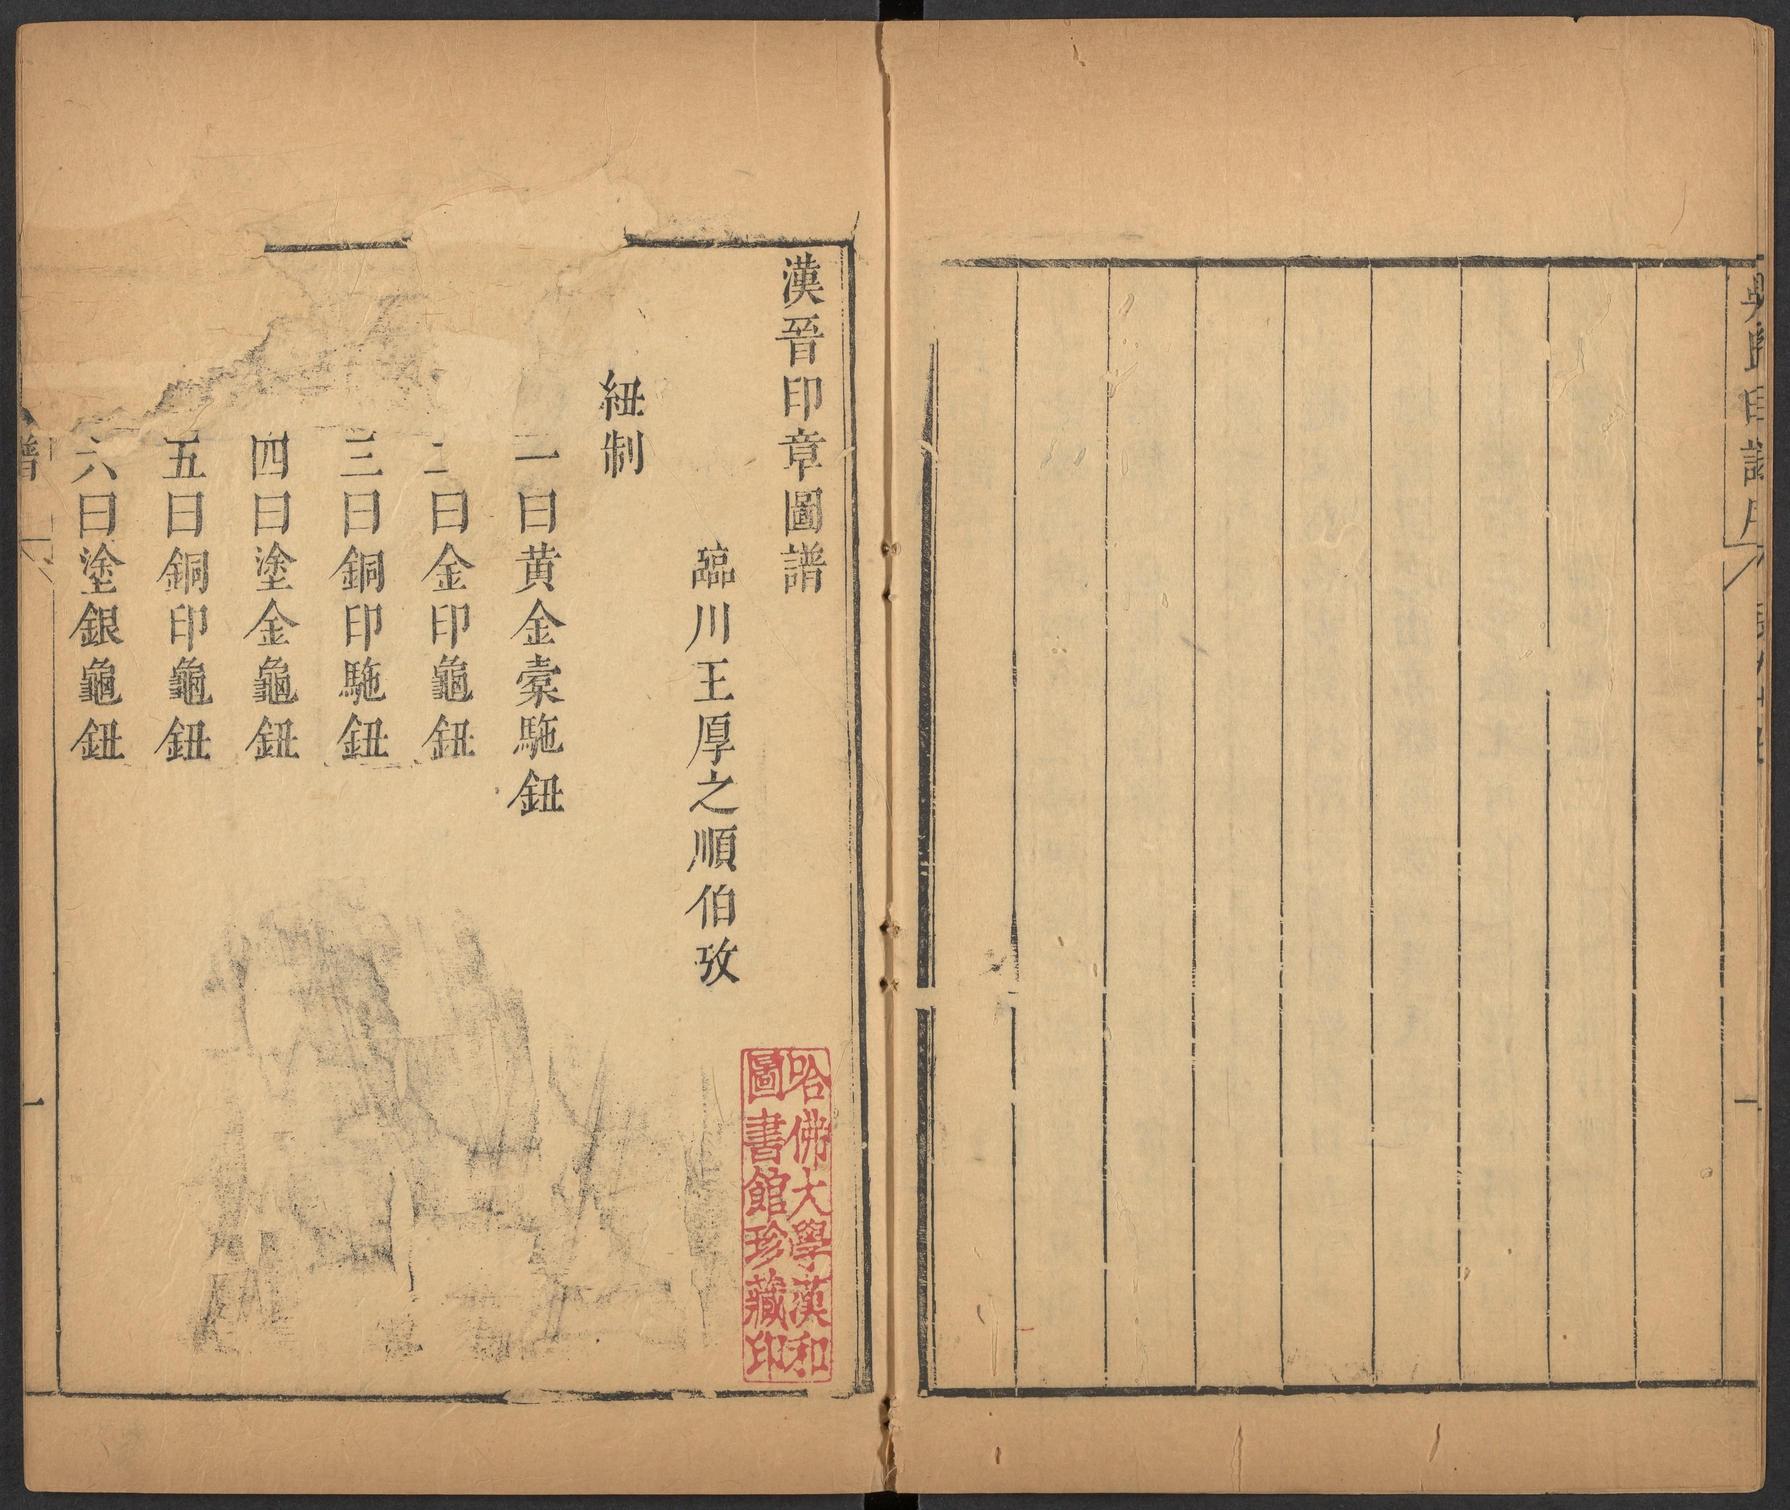 漢晉印章圖譜
臨川王厚之順伯攷
紐制
一曰黃金橐駞鈕
二曰金印龜鈕
三曰銅印駞鈕
四曰塗金龜鈕
五曰銅印龜鈕
六曰塗銀龜鈕
譜
一
哈佛大學漢和
圖書館珍藏印
一